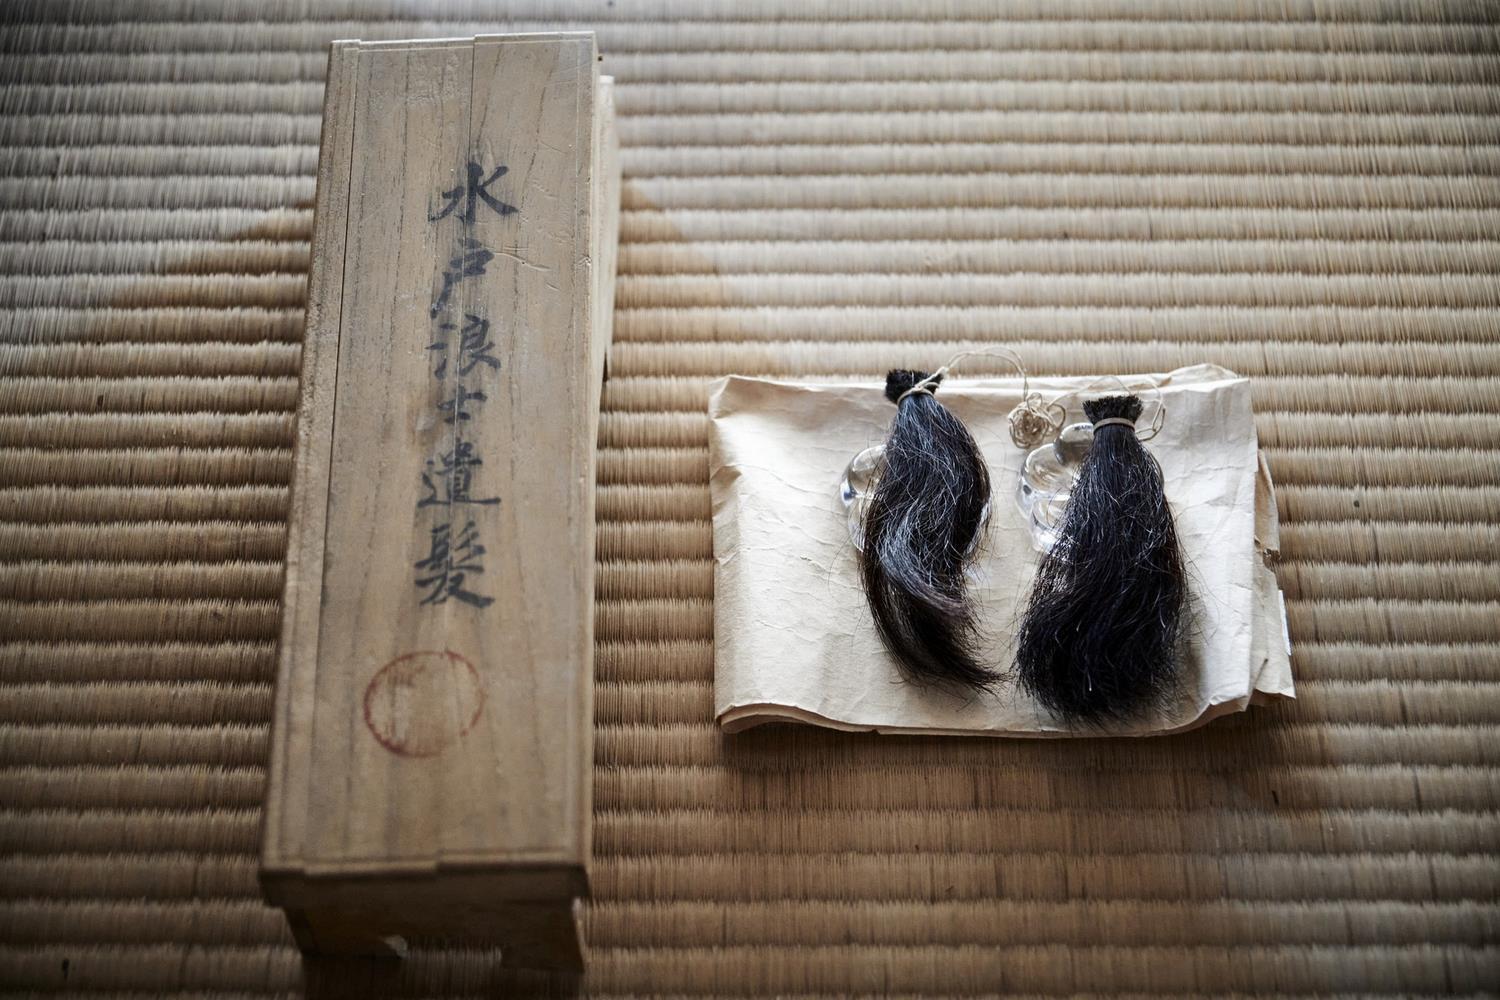 水戸浪士遺髪